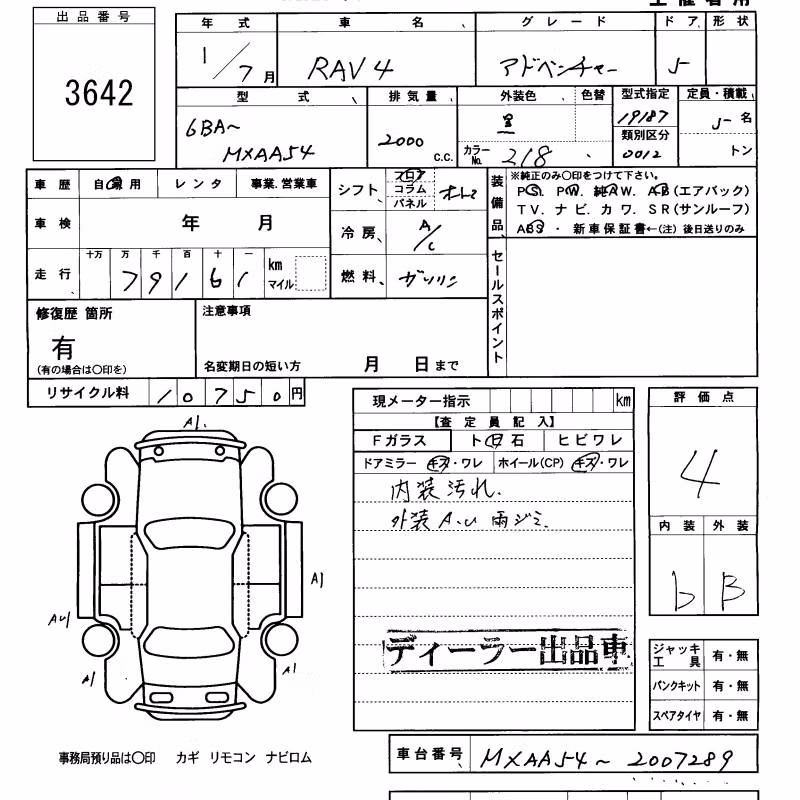 出品番号
3642
年 式 車 名 グレード ドア 形状
1/7月 RAV4 アドベンチャー 5
型 式 排気量 外装色 色替 型式指定 定員・積載
6BA~ MXAA54 2000 c.c. 黒 19187 5名
カラーNo. 218 類別区分 0012 トン
車歴 自家用 レンタ 事業.営業車 シフト フロア コラム パネル オート
装備品 ※純正のみ〇印をつけて下さい。
PS. PW. 純AW. AB(エアバック)
TV. ナビ. カワ. SR(サンルーフ)
ABS ・ 新車保証書←(注) 後日送りのみ
車検 年 月 冷房 A/C
走行 十万 万 千 百 十 一
79161 km マイル 燃料 ガソリン
セールスポイント
修復歴 箇所
有
(有の場合は〇印を)
注意事項
名変期日の短い方 月 日まで
リサイクル料 10750円
現メーター指示 km
【査定員記入】
Fガラス ト日石 ヒビワレ
ドアミラー キズ・ワレ ホイール(CP) キズ・ワレ
内装汚れ.
外装A.U 雨ジミ.
ディーラー出品車
評価点
4
内装 外装
b B
ジャッキ工具 有・無
パンクキット 有・無
スペアタイヤ 有・無
A1.
A1
AU1
A1
A1
事務局預り品は〇印 カギ リモコン ナビロム
車台番号 MXAA54~2007289